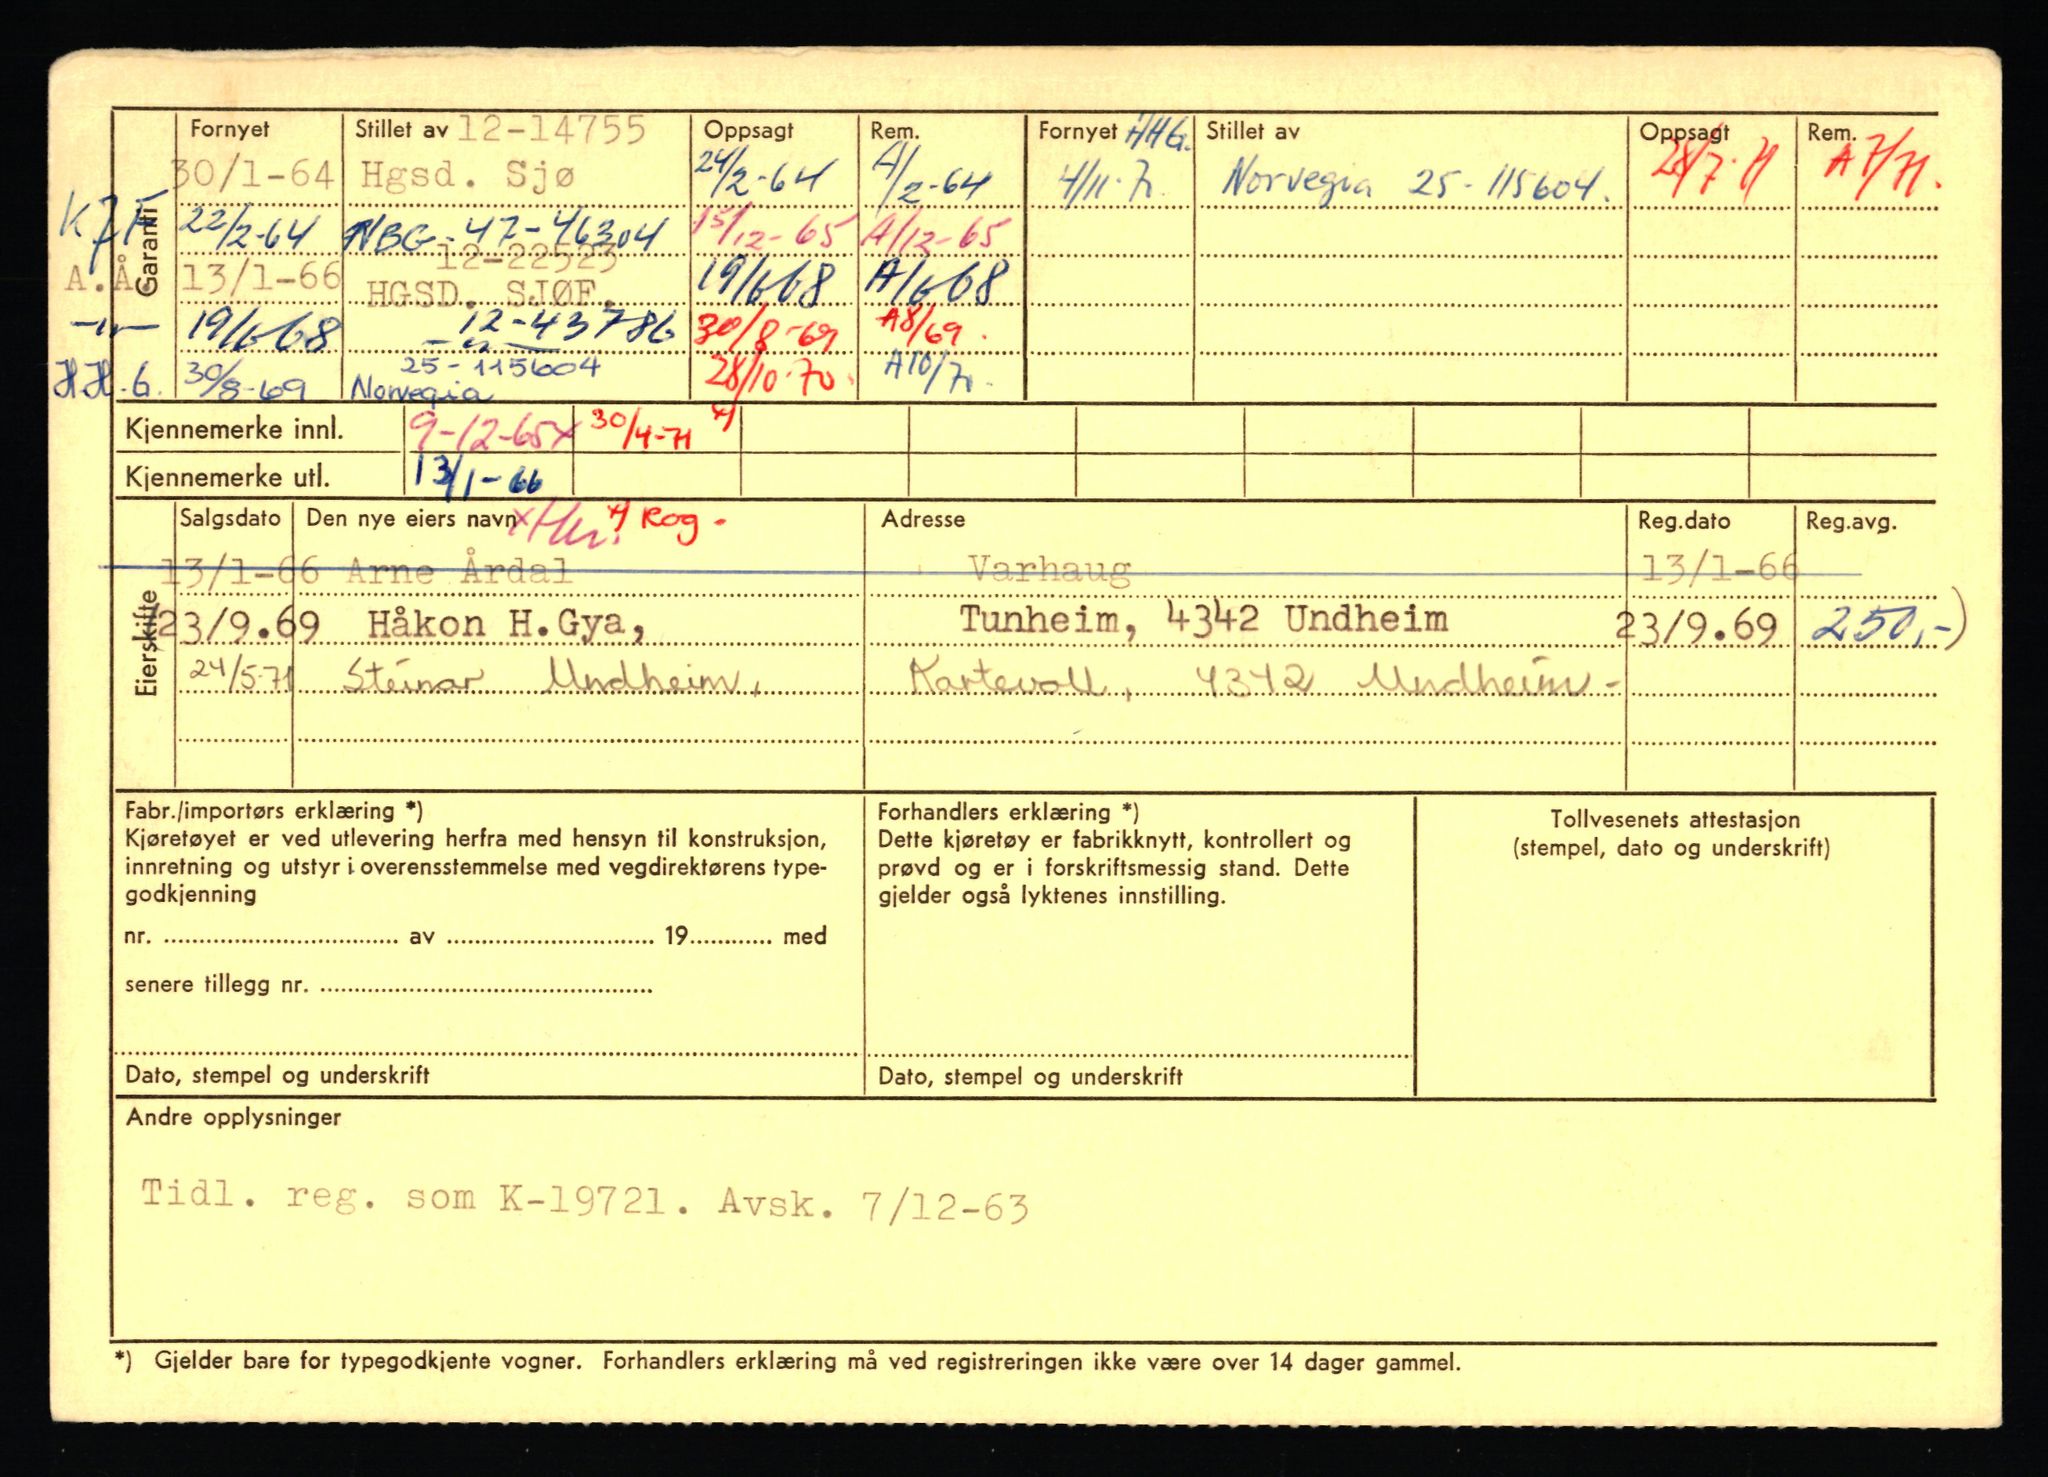 Garanti
Fornyet Stillet av 12-14755 Oppsagt Rem. Fornyet HHG. Stillet av Oppsagt Rem.
30/1-64 Hgsd. Sjø 24/2-64 A/2-64 4/11-70 Norvegia 25-115604. 28/7-71 A7/71.
22/2-64 NBG-47-46304 15/12-65 A/12-65
12-22523
A.Å. 13/1-66 HGSD. SJØF. 19/6-68 A/6-68
-"- 19/6-68 -"- 12-43786 30/8-69 A8/69.
25-115604
H.H.G. 30/8-69 Norvegia 28/10-70. A10/70.
Kjennemerke innl. 9-12-65x 30/4-71 x)
Kjennemerke utl. 13/1-66
Eierskifte
Salgsdato Den nye eiers navn x) Rog. Adresse Reg.dato Reg.avg.
13/1-66 Arne Årdal Varhaug 13/1-66
23/9.69 Håkon H.Gya, Tunheim, 4342 Undheim 23/9.69 250,-)
24/5-71 Steinar Undheim, Kartevoll, 4342 Undheim-
Fabr./importørs erklæring *)
Kjøretøyet er ved utlevering herfra med hensyn til konstruksjon,
innretning og utstyr i overensstemmelse med vegdirektørens type-
godkjenning
nr. .................... av .................... 19............ med
senere tillegg nr. ....................
Dato, stempel og underskrift
Forhandlers erklæring *)
Dette kjøretøy er fabrikknytt, kontrollert og
prøvd og er i forskriftsmessig stand. Dette
gjelder også lyktenes innstilling.
Dato, stempel og underskrift
Tollvesenets attestasjon
(stempel, dato og underskrift)
Andre opplysninger
Tidl. reg. som K-19721. Avsk. 7/12-63
*) Gjelder bare for typegodkjente vogner. Forhandlers erklæring må ved registreringen ikke være over 14 dager gammel.